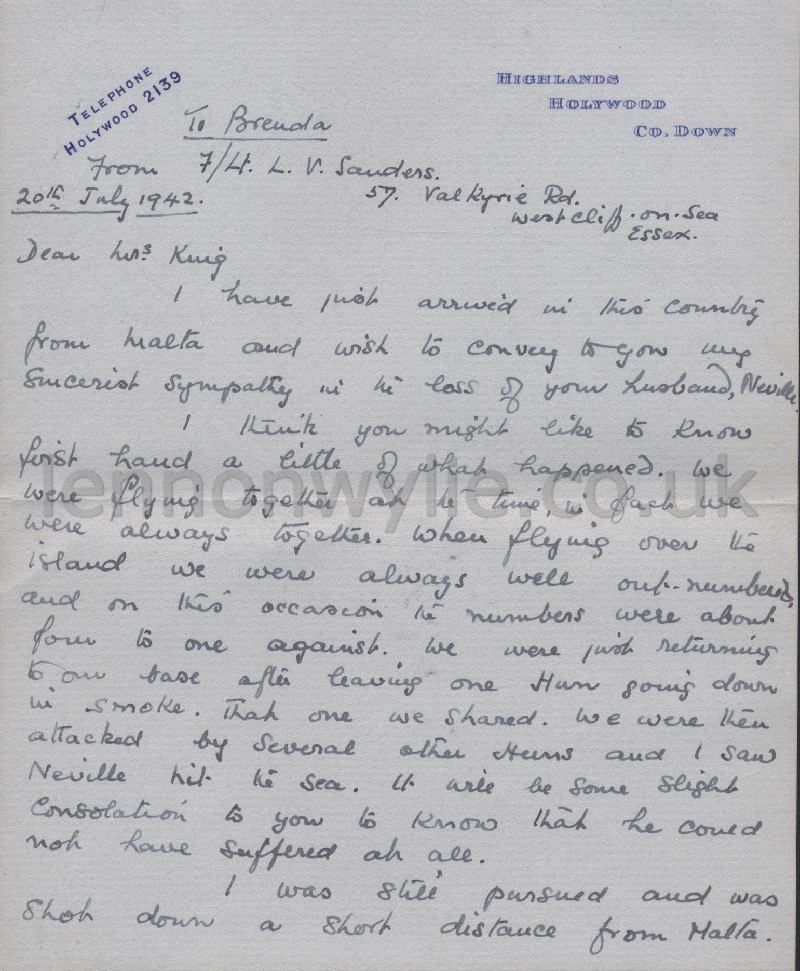 TELEPHONE
HOLYWOOD 2139
HIGHLANDS
HOLYWOOD
CO. DOWN
To Brenda
From F/Lt. L. V. Sanders.
20th July 1942.
57. Valkyrie Rd.
Westcliff-on-Sea
Essex.
Dear Mrs King
I have just arrived in this country
from Malta and wish to convey to you my
sincerist sympathy in the loss of your husband, Neville.
I think you might like to know
first hand a little of what happened. We
were flying together at the time, in fact we
were always together. When flying over the
island we were always well out-numbered,
and on this occasion the numbers were about
four to one against. We were just returning
to our base after leaving one Hun going down
in smoke. That one we shared. We were then
attacked by several other Huns and I saw
Neville hit the sea. It will be some slight
consolation to you to know that he could
not have suffered at all.
I was still pursued and was
shot down a short distance from Malta.
lennonwylie.co.uk